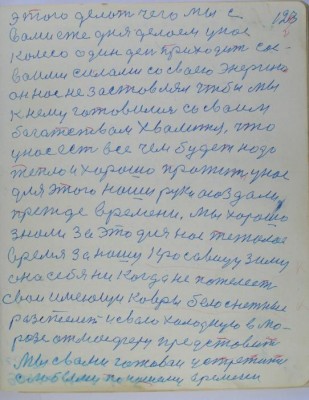 этого делат чего мы с 193
вами еже дня делаем у нас
колесо один ден приходит со
своими силами со своею Энергию
он нас не заставлял чтобы мы
к нему готовилися со своим
богатством хвалится, что
у нас ест все чем будет надо
тепло и хорошо прожит у нас
для этого наши руки создали
прежде времени, мы хорошо
знали за это для нас тежолое
время за нашу красавицу зиму
она себя ни когда не пожелеет
свои имеющии ковры белоснежные
разстелит и свою холодную в мо-
розе атмосферу представит
Мы с вами готовы встретит
с любыми по часам времени